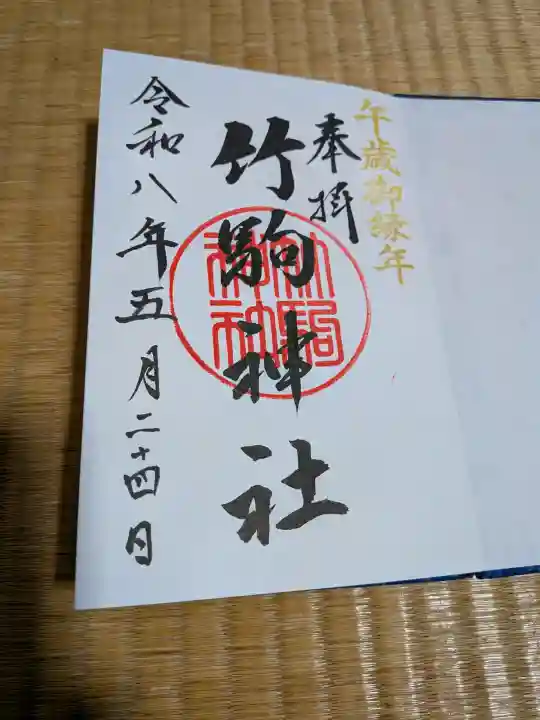 午歳御縁年
奉拝
竹駒神社
竹駒
神社
令和八年五月二十四日